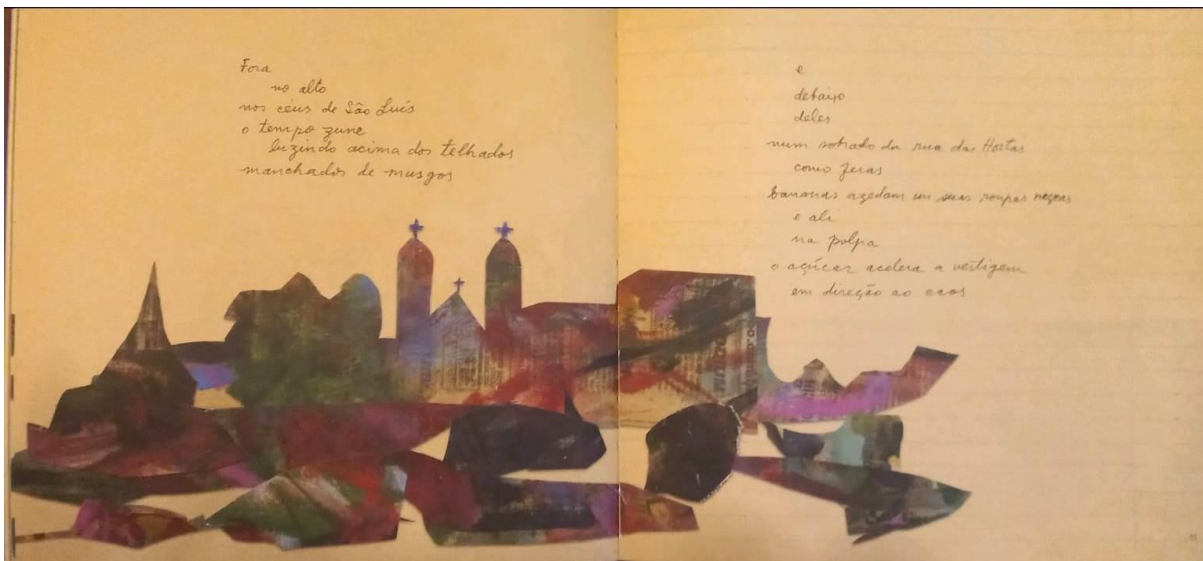 Fora
no alto
nos céus de São Luís
o tempo zune
luzindo acima dos telhados
manchados de musgos
e
debaixo
deles
num sobrado da rua das Hortas
como feras
bananas azedam em suas roupas negras
e ali
na polpa
o açúcar acelera a vertigem
em direção ao caos